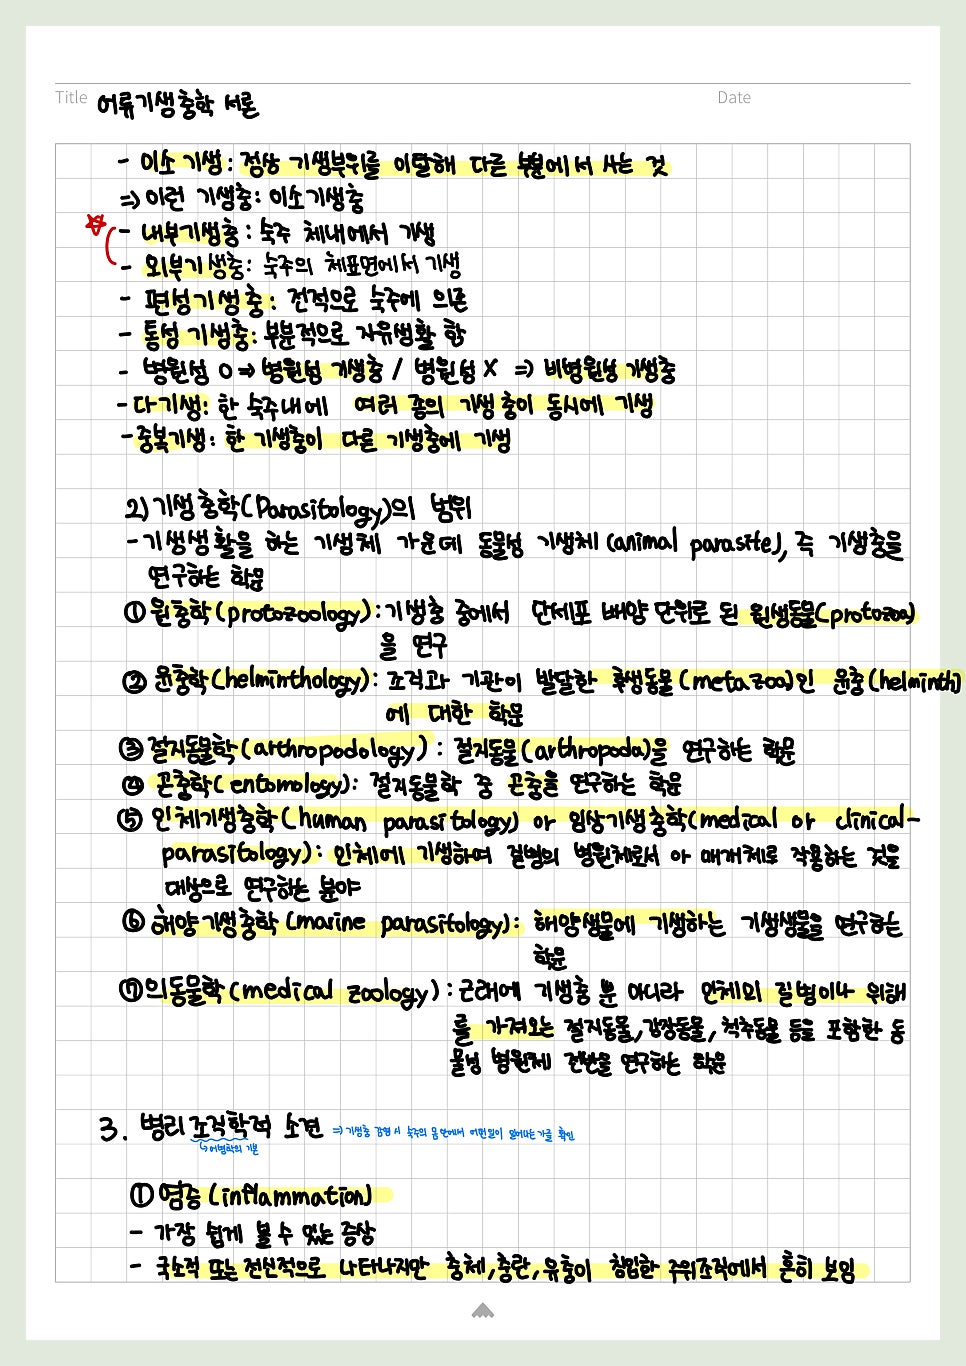 Title 어류기생충학 서론
Date
- 이소 기생 : 정상 기생부위를 이탈해 다른 부분에서 사는 것
=> 이런 기생충 : 이소기생충
- 내부기생충 : 숙주 체내에서 기생
- 외부기생충 : 숙주의 체표면에서 기생
- 편성기생충 : 전적으로 숙주에 의존
- 통성 기생충 : 부분적으로 자유생활 함
- 병원성 O => 병원성 기생충 / 병원성 X => 비병원성 기생충
- 다기생 : 한 숙주내에 여러 종의 기생충이 동시에 기생
- 중복기생 : 한 기생충이 다른 기생충에 기생
2) 기생충학(Parasitology)의 범위
- 기생생활을 하는 기생체 가운데 동물성 기생체(animal parasite), 즉 기생충을
연구하는 학문
① 원충학(protozoology) : 기생충 중에서 단세포 배양 단위로 된 원생동물(protozoa)
을 연구
② 윤충학(helminthology) : 조직과 기관이 발달한 후생동물(metazoa)인 윤충(helminth)
에 대한 학문
③ 절지동물학(arthropodology) : 절지동물(arthropoda)을 연구하는 학문
④ 곤충학(entomology) : 절지동물학 중 곤충을 연구하는 학문
⑤ 인체기생충학(human parasitology) or 임상기생충학(medical or clinical-
parasitology) : 인체에 기생하여 질병의 병원체로서 아 매개체로 작용하는 것을
대상으로 연구하는 분야
⑥ 해양기생충학(marine parasitology) : 해양생물에 기생하는 기생생물을 연구하는
학문
⑦ 의동물학(medical zoology) : 근래에 기생충 뿐 아니라 인체의 질병이나 위해
를 가져오는 절지동물, 강장동물, 척추동물 등을 포함한 동
물성 병원체 전반을 연구하는 학문
3. 병리조직학적 소견 => 기생충 감염시 숙주의 몸 안에서 어떤일이 일어나는가를 확인
↳ 어병학의 기본
① 염증(inflammation)
- 가장 쉽게 볼 수 있는 증상
- 국소적 또는 전신적으로 나타나지만 충체, 충란, 유충이 침입한 주위조직에서 흔히 보임